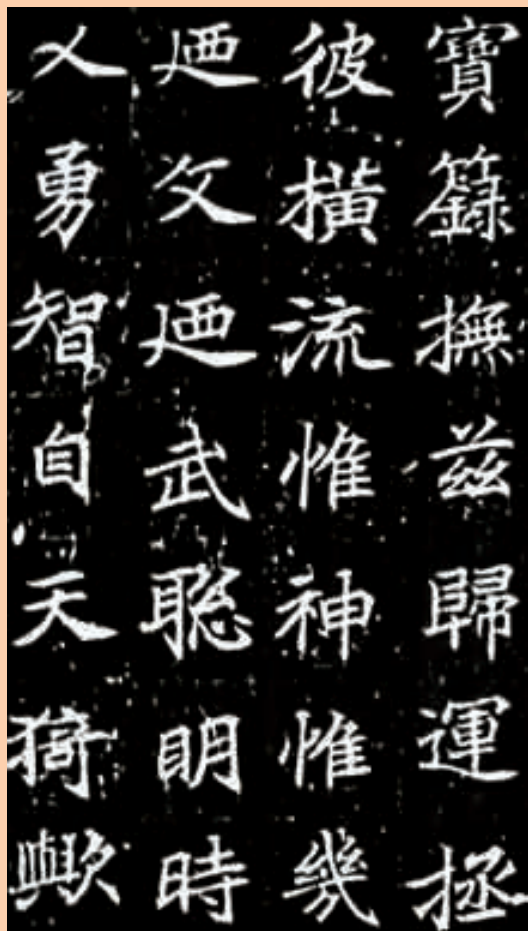 寶籙撫兹歸運拯
彼横流惟神惟幾
廼文廼武聡明時
乂勇智自天猗歟